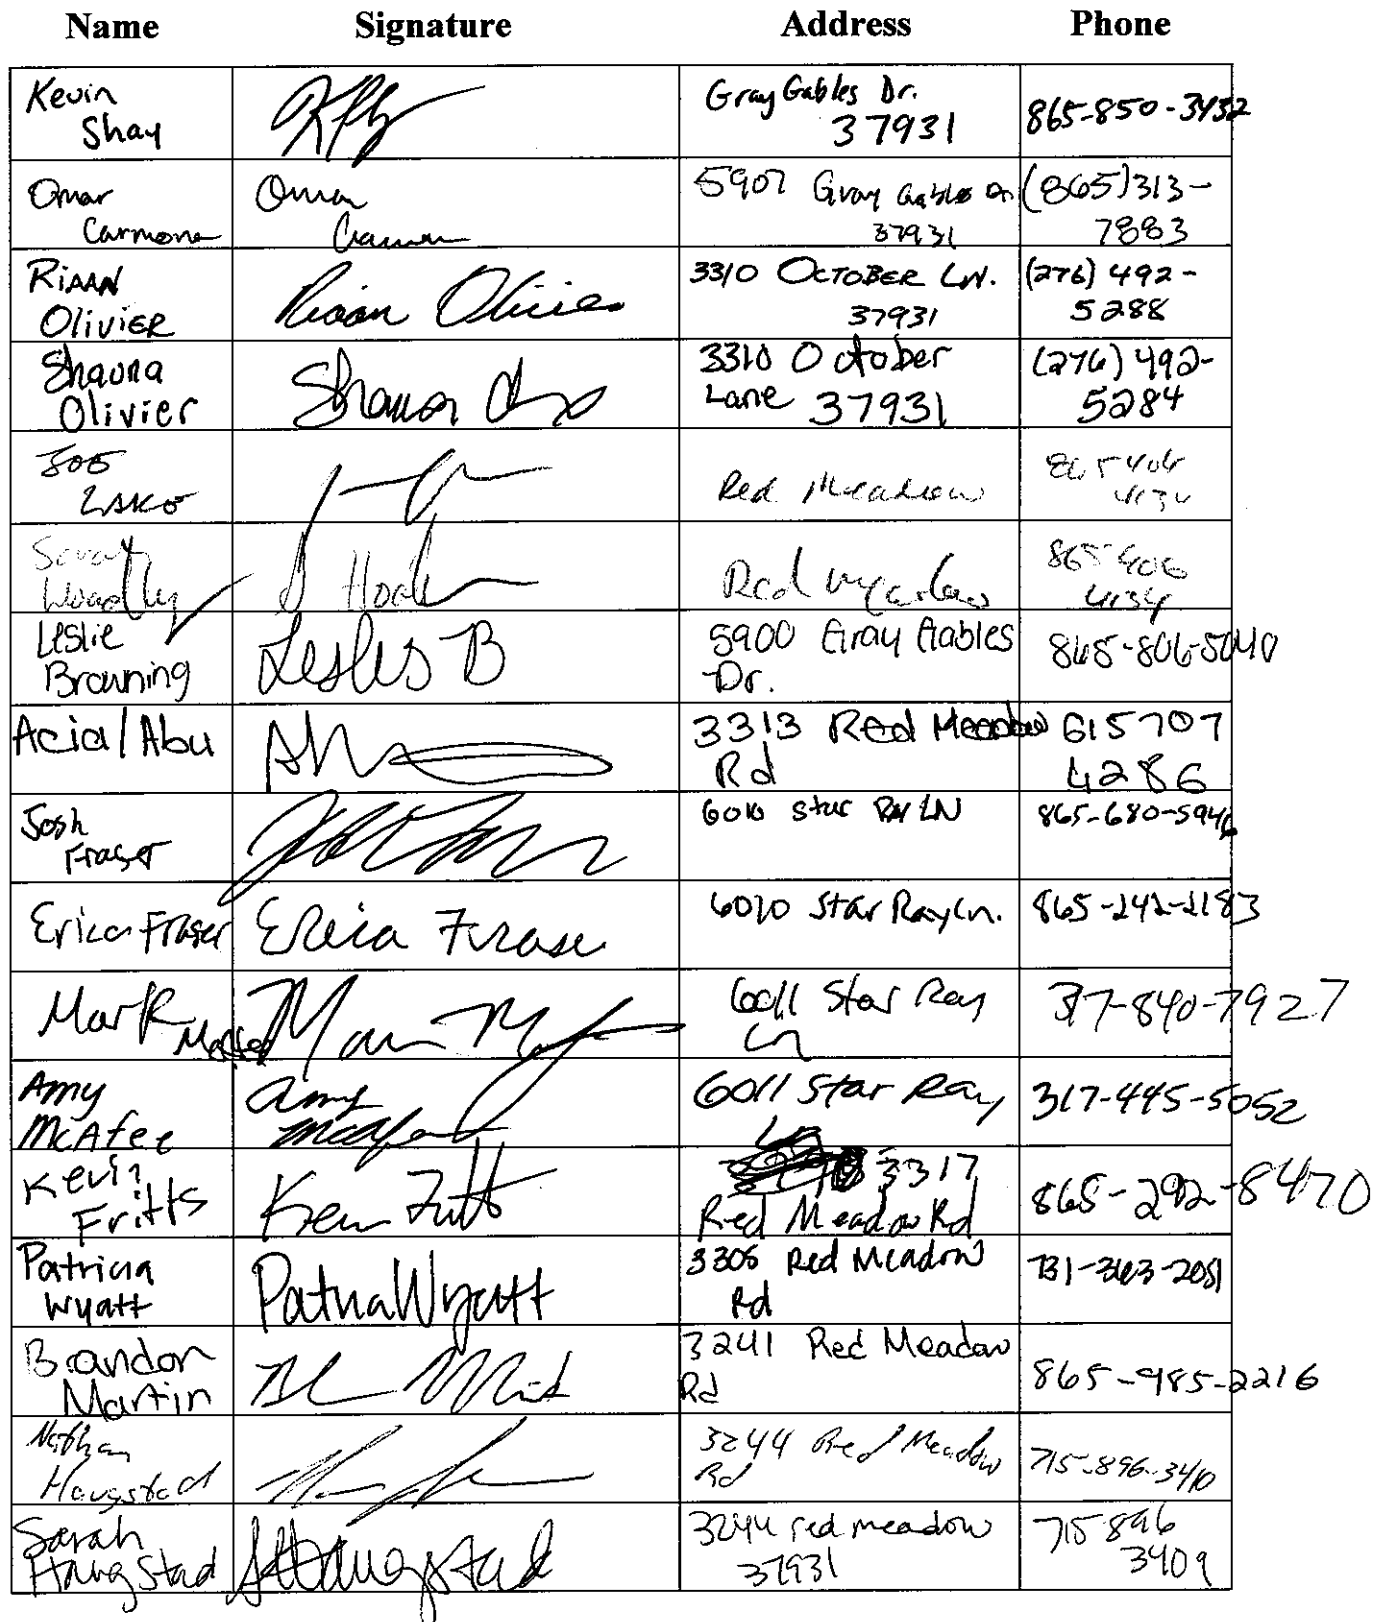 Name Signature Address Phone
Kevin Shay Gray Gables Dr. 37931 865-850-3432
Omar Carmona Omar 5907 Gray Gables Dr. 37931 (865)313-7883
RiAAN OliviER Riaan Olivier 3310 OCTOBER LN. 37931 (276) 492-5288
Shauna Olivier Shauna 3310 October Lane 37931 (276) 492-5284
JOE Red Meadow 865
Sarah Red Meadow 865
Leslie Browning Leslie B 5900 Gray Gables Dr. 865-806-5040
Acial Abu 3313 Red Meadow Rd 615 707 4286
Josh Fraser 6010 Star Ray LN 865-680-5946
Erica Fraser Erica Fraser 6010 Star Ray Ln. 865-242-2183
Mark 6011 Star Ray Ln 317-840-7927
Amy McAfee Amy McAfee 6011 Star Ray Ln 317-445-5052
Kevin Fritts Kevin Fritts 3317 Red Meadow Rd 865-292-8470
Patricia Wyatt Patricia Wyatt 3305 Red Meadow Rd 731-363-2051
Brandon Martin 3241 Red Meadow Rd 865-985-2216
Nathan Haugstad 3244 Red Meadow Rd 715-896-3410
Sarah Haugstad SHaugstad 3244 red meadow 37931 715 896 3409